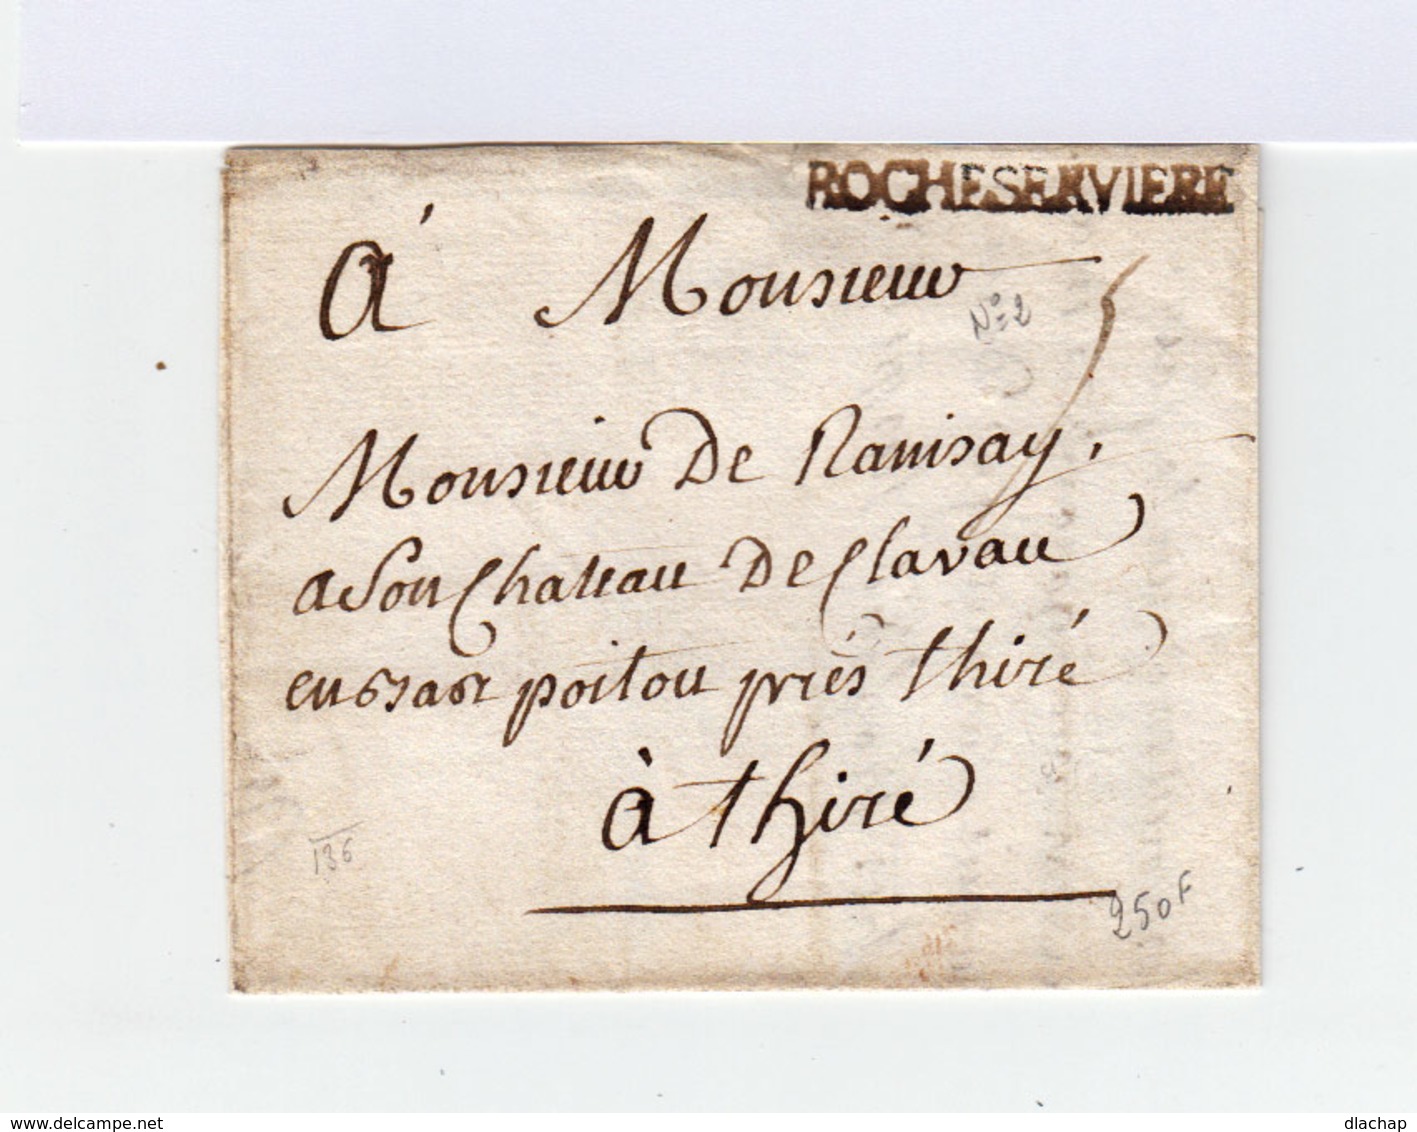 ROCHESERVIERE
à Monsieur
N° 2
Monsieur De Ramsay,
a son Chateau De Clavau
en bas poitou près thiré
à thiré
136
250F
delcampe.net
dlachap